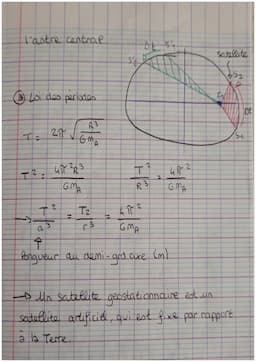 l'astre central
satellite
Δt
③ Loi des périodes
T = 2π √(R³/Gm_A)
T² = 4π²R³/Gm_A    T²/R³ = 4π²/Gm_A
→ T²/a³ = T²/r³ = 4π²/Gm_A
longueur du demi-grd axe (m)
→ Un satellite géostationnaire est un
satellite artificiel, qui est fixe par rapport
à la Terre.